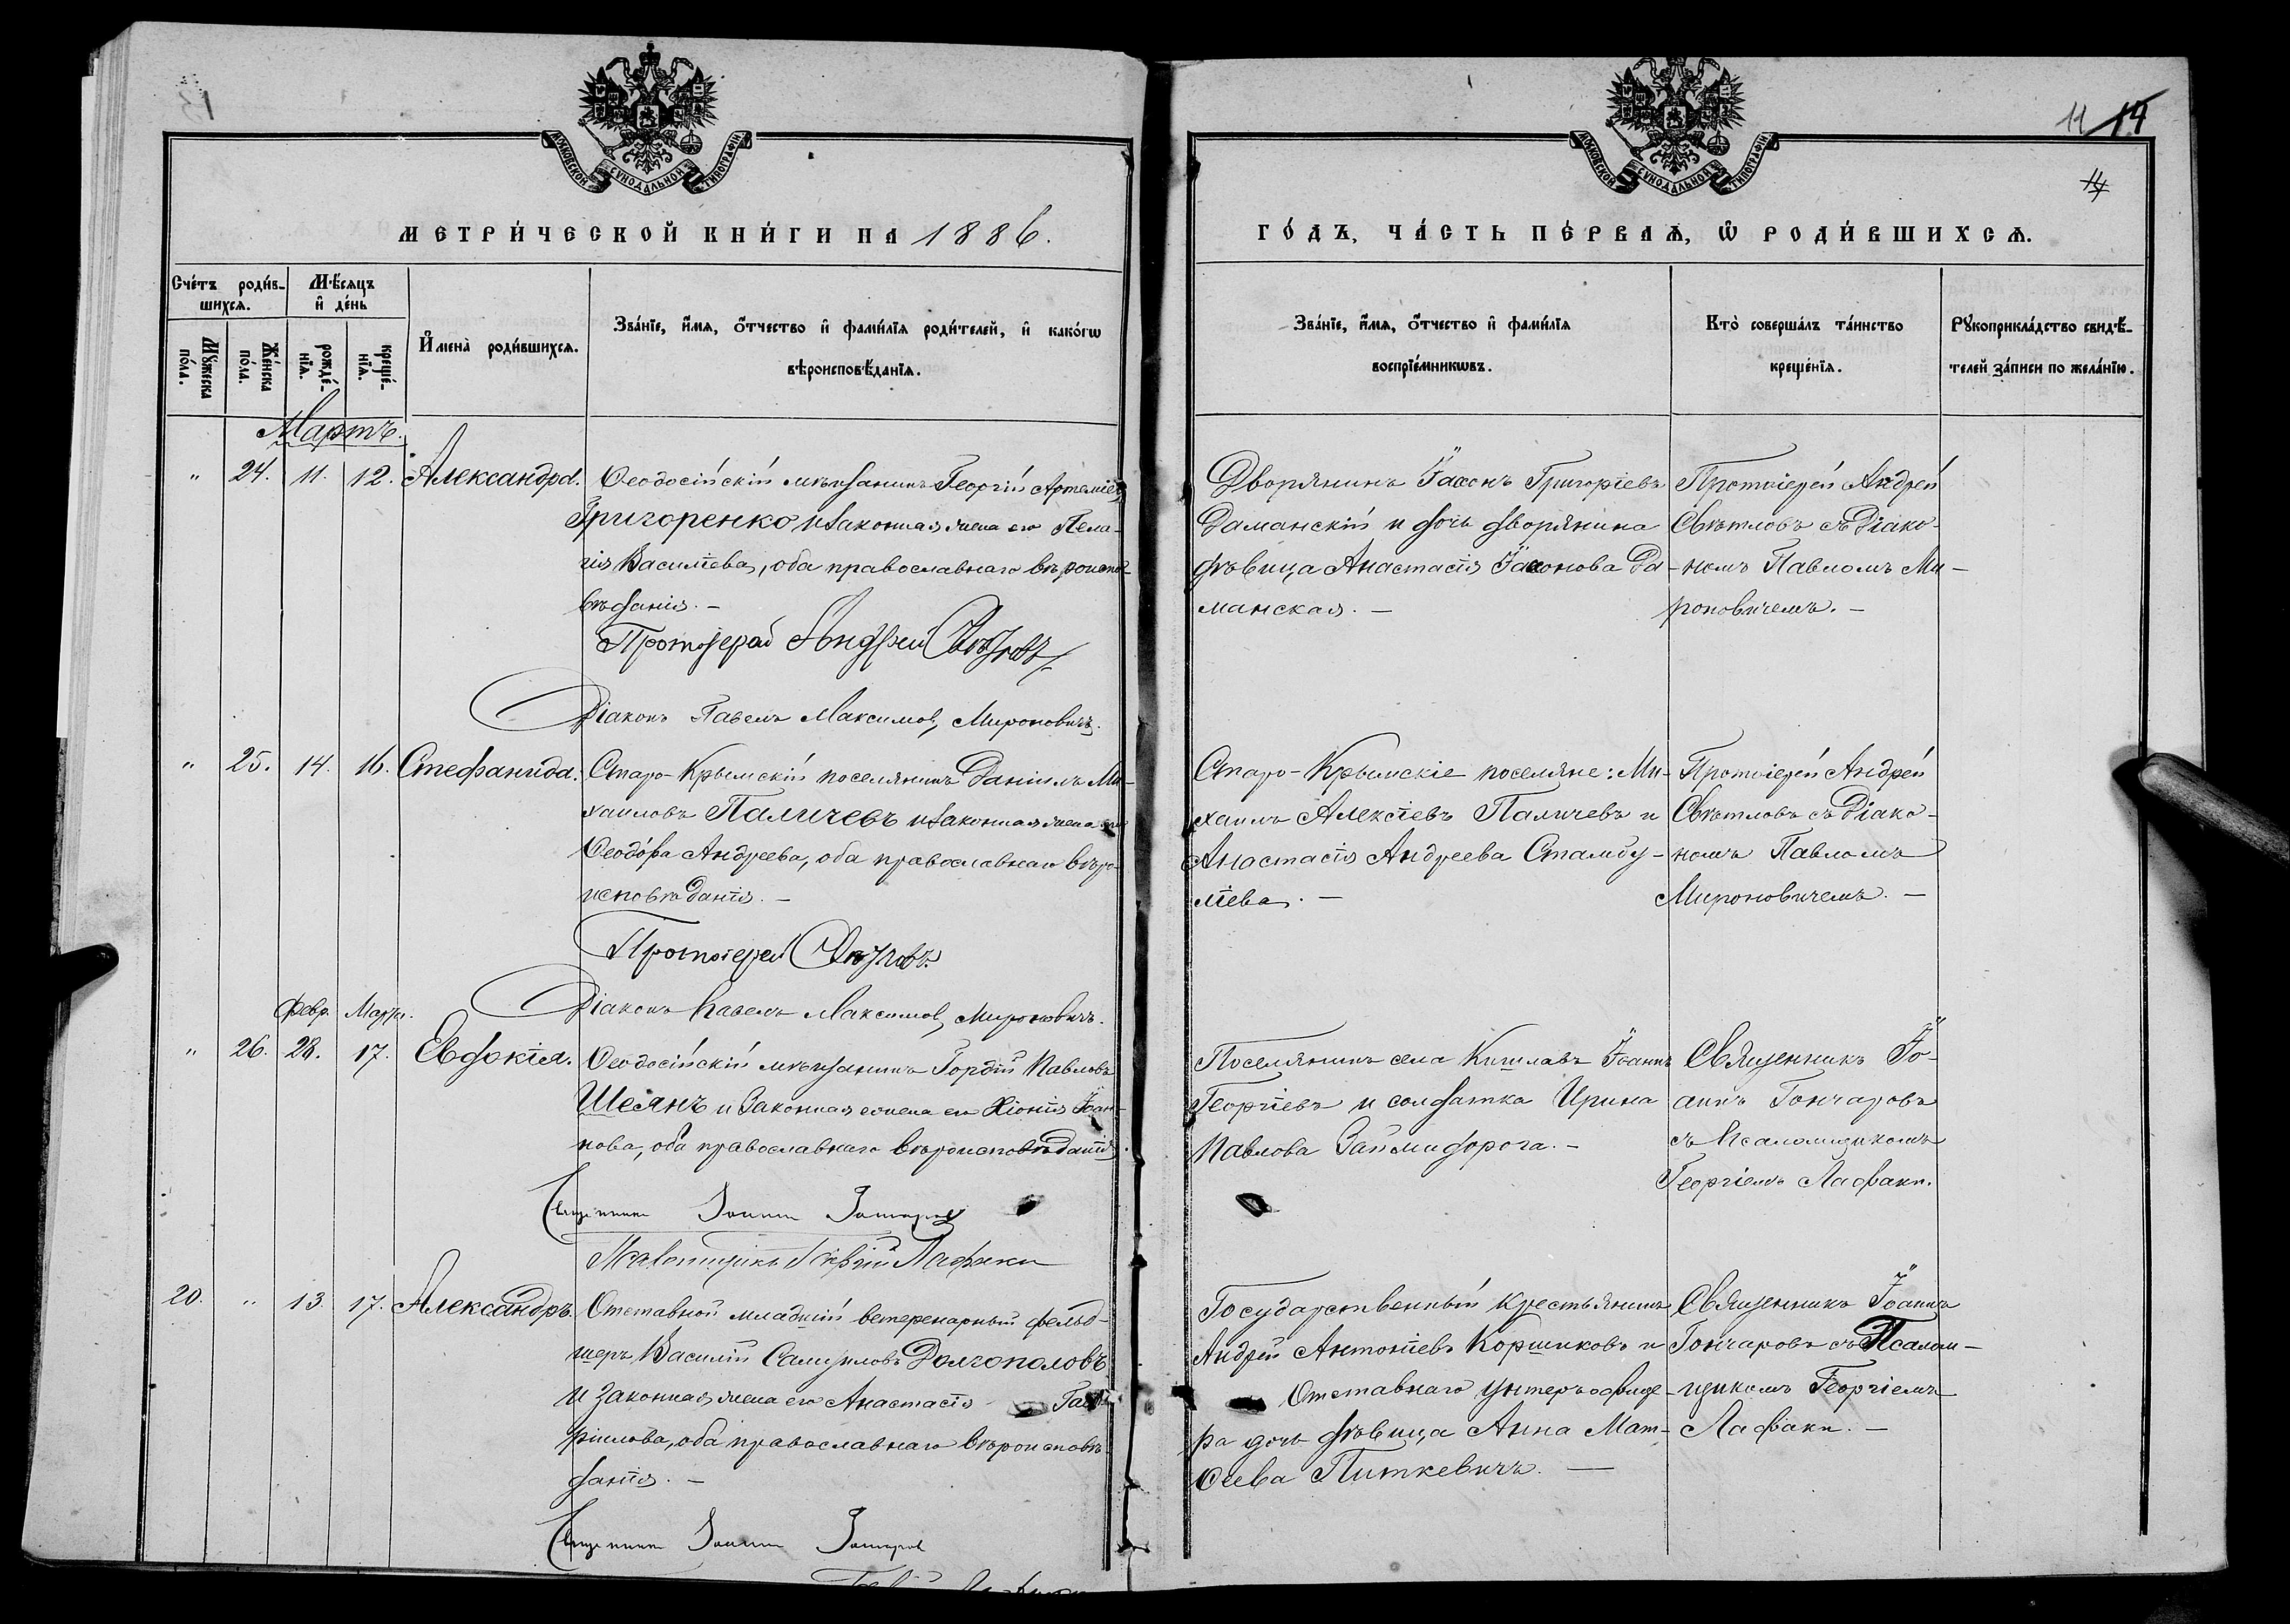 13
11 14
14
МОСКОВСКОЙ СѴНОДАЛЬНОЙ ТИПОГРАФІИ
МОСКОВСКОЙ СѴНОДАЛЬНОЙ ТИПОГРАФІИ
МЕТРИ́ЧЕСКОЙ КНИ́ГИ НА 1886.
ГО́ДЪ, ЧА́СТЬ ПЕ́РВАѦ, Ѽ РОДИ́ВШИХСѦ.
Сче́тъ роди́в-
шихсѧ.
Мѣ́сѧцъ
и҆ де́нь
Мꙋ́жеска
по́ла.
Же́нска
по́ла.
рожде́-
нїѧ.
креще́-
нїѧ.
И҆мена̀ роди́вшихсѧ.
Зва́нїе, и҆́мѧ, ѻ҆́тчество и҆ фами́лїѧ роди́телей, и҆ како́гѡ
вѣроисповѣ́данїѧ.
Зва́нїе, и҆́мѧ, ѻ҆́тчество и҆ фами́лїѧ
воспрїе́мникѡвъ.
Кто̀ соверша́лъ та́инство
креще́нїѧ.
Рꙋкоприкла́дство свидѣ́-
телей за́писи по жела́нїю.
Мартъ.
" 24. 11. 12. Александра.
Ѳеодосійскій мѣщанинъ Георгій Артеміевъ
Григоренко и законная жена его Пела-
гія Василіева, оба православнаго вѣроиспо-
вѣданія. —
Протоіерей Андрей Свѣтловъ
Діаконъ Павелъ Максимов. Мироновичъ.
Дворянинъ Іасонъ Григоріевъ
Даманскій и дочь дворянина
дѣвица Анастасія Іасонова Да-
манская. —
Протоіерей Андрей
Свѣтловъ съ Діако-
номъ Павломъ Ми-
роновичемъ. —
" 25. 14. 16. Стефанида.
Старо-Крымскій поселянинъ Даніилъ Ми-
хаиловъ Паличевъ и законная жена его
Ѳеодора Андреева, оба православнаго вѣро-
исповѣданія. —
Протоіерей Свѣтловъ
Діаконъ Павелъ Максимов. Мироновичъ.
Старо-Крымскіе поселяне: Ми-
хаилъ Алексіевъ Паличевъ и
Анастасія Андреева Стамбу-
ліева. —
Протоіерей Андрей
Свѣтловъ съ Діако-
номъ Павломъ
Мироновичемъ. —
Февр. Март.
" 26. 28. 17. Евдокія.
Ѳеодосійскій мѣщанинъ Гордій Павловъ
Шеянъ и законная жена его Хіонія Іоан-
нова, оба православнаго вѣроисповѣданія.
Священникъ Іоаннъ Гончаровъ
Псаломщикъ Георгій Лафаки
Поселянинъ села Кишлавъ Іоаннъ
Георгіевъ и солдатка Ирина
Павлова Займидорога. —
Священникъ Іо-
аннъ Гончаровъ
съ Псаломщикомъ
Георгіемъ Лафаки.
20. " 13. 17. Александръ.
Отставной младшій ветеренарный фельд-
шеръ Василій Самуиловъ Долгополовъ
и законная жена его Анастасія Гав-
ріилова, оба православнаго вѣроисповѣ-
данія. —
Священникъ Іоаннъ Гончаровъ
Государственный крестьянинъ
Андрей Антоніевъ Коршиковъ и
Отставнаго унтеръ офице-
ра дочь дѣвица Анна Мат-
ѳеева Питкевичъ. —
Священникъ Іоаннъ
Гончаровъ съ Псалом-
щикомъ Георгіемъ
Лафаки. —